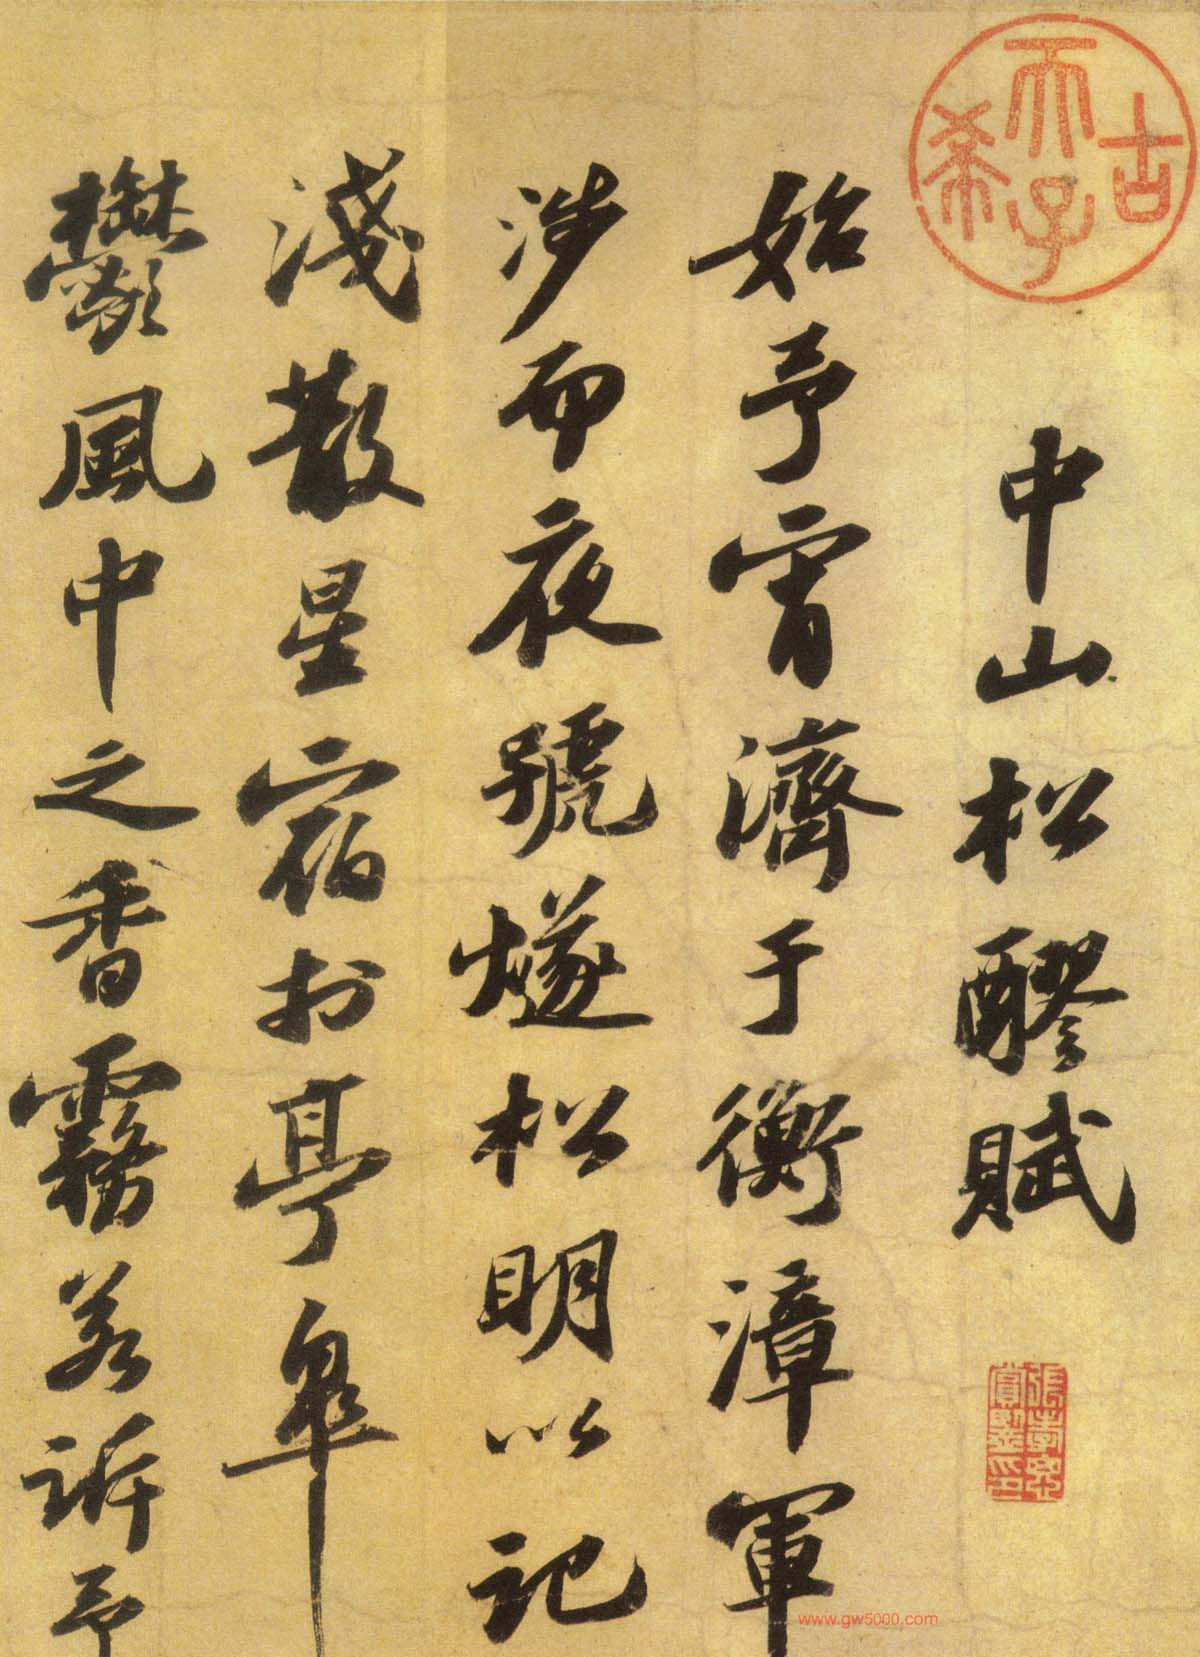 古希天子
中山松醪賦
始予宵濟于衡漳軍
涉而夜號燧松明以記
淺散星宿於亭皋
鬱風中之香霧若訴予
張孝思賞鑒印
www.gw5000.com